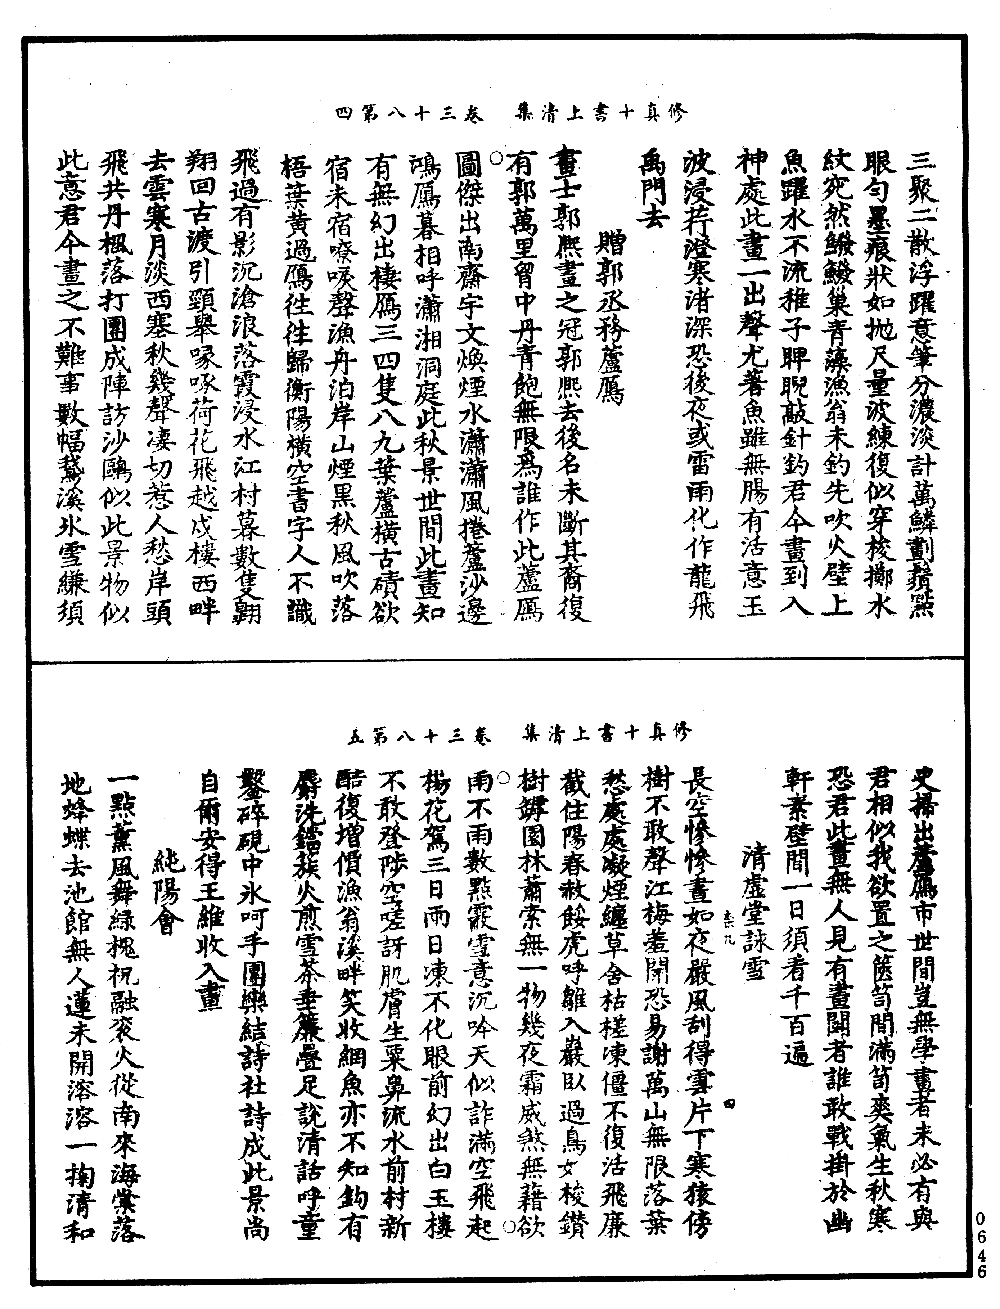 修真十書上清集　卷三十八第四
三聚二散浮躍意筆分濃淡計萬鱗劃鬚點
眼勻墨痕狀如拋尺量波練復似穿梭擲水
紋宛然鱍鱍巢青藻漁翁未釣先吹火壁上
魚躍水不流稚子睥睨敲針鈎君今畫到入
神處此畫一出聲尤著魚雖無腸有活意玉
波浸荇澄寒渚深恐後夜或雷雨化作龍飛
禹門去
贈郭丞務蘆鴈
畫士郭熙畫之冠郭熙去後名未斷其裔復
有郭萬里胷中丹青飽無限為誰作此蘆鴈
圖傑出南齋宇文煥煙水瀟瀟風捲蘆沙邊
鴻鴈暮相呼瀟湘洞庭此秋景世間此畫知
有無幻出棲鴈三四隻八九葉蘆橫古磧欲
宿未宿嘹唳聲漁舟泊岸山煙黑秋風吹落
梧葉黃過鴈往往歸衡陽橫空書字人不識
飛過有影沉滄浪落霞浸水江村暮數隻翱
翔回古渡引頸舉喙啄荷花飛越戍樓西畔
去雲寒月淡西塞秋幾聲凄切惹人愁岸頭
飛共丹楓落打團成陣訪沙鷗似此景物似
此意君今畫之不難事數幅鵝溪氷雪縑須
修真十書上清集　卷三十八第五
臾掃出蘆鴈市世間豈無學畫者未必有與
君相似我欲置之篋笥間滿笥爽氣生秋寒
恐君此畫無人見有畫鬬者誰敢戰掛於幽
軒素壁間一日須看千百遍
清虛堂詠雪
長空慘慘晝如夜嚴風刮得雲片下寒猿傍
樹不敢聲江梅羞開恐易謝萬山無限落葉
愁處處凝煙纏草舍枯槎凍僵不復活飛廉
截住陽春赦餒虎呼雛入巖臥過鳥如梭鑽
樹罅園林蕭索無一物幾夜霜威煞無藉欲
雨不雨數點霰雪意沉吟天似詐滿空飛起
楊花駕三日雨日凍不化眼前幻出白玉樓
不敢登陟空嗟訝肌膚生粟鼻流水前村新
酷復增價漁翁溪畔笑收網魚亦不知鈎有
麝洗鐺蔟火煎雪茶垂簾疊足說清話呼童
鑿碎硯中氷呵手團欒結詩社詩成此景尚
自爾安得王維收入畫
純陽會
一點薰風舞綠槐祝融衮火從南來海棠落
地蜂蝶去池館無人蓮未開溶溶一掬清和
0646